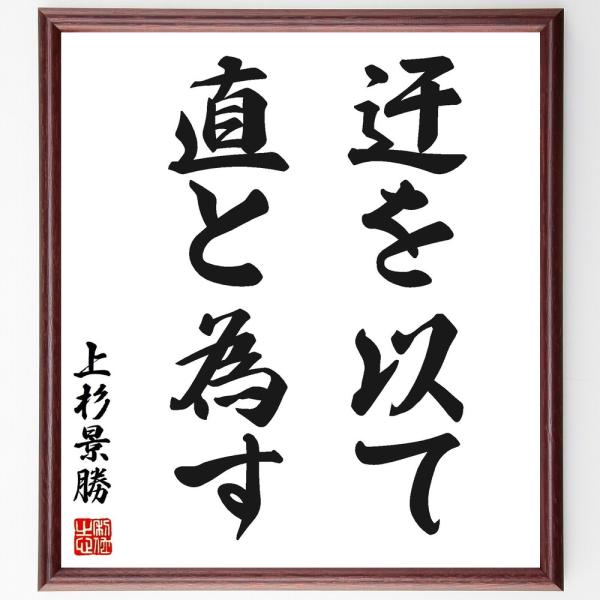 迂を以て
直と為す
上杉景勝